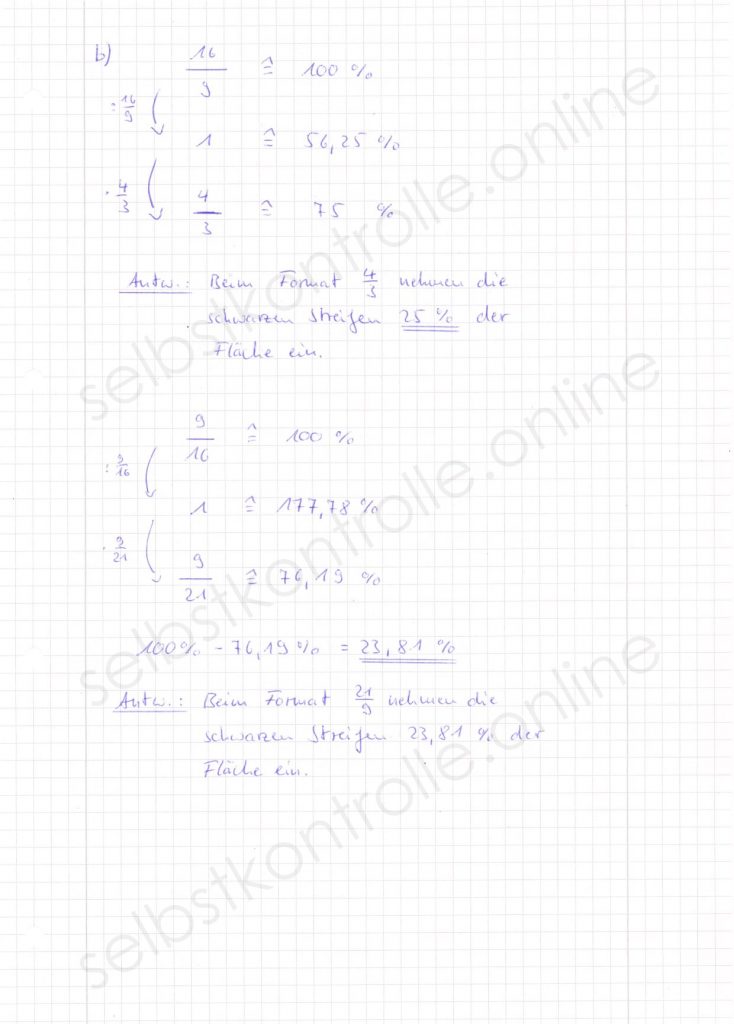 b) 16/9 ≙ 100 %
: 16/9
1 ≙ 56,25 %
· 4/3
4/3 ≙ 75 %
Antw.: Beim Format 4/3 nehmen die
schwarzen Streifen 25 % der
Fläche ein.
9/16 ≙ 100 %
: 9/16
1 ≙ 177,78 %
· 9/21
9/21 ≙ 76,19 %
100% - 76,19% = 23,81 %
Antw.: Beim Format 21/9 nehmen die
schwarzen Streifen 23,81 % der
Fläche ein.
selbstkontrolle.online
selbstkontrolle.online
selbstkontrolle.online